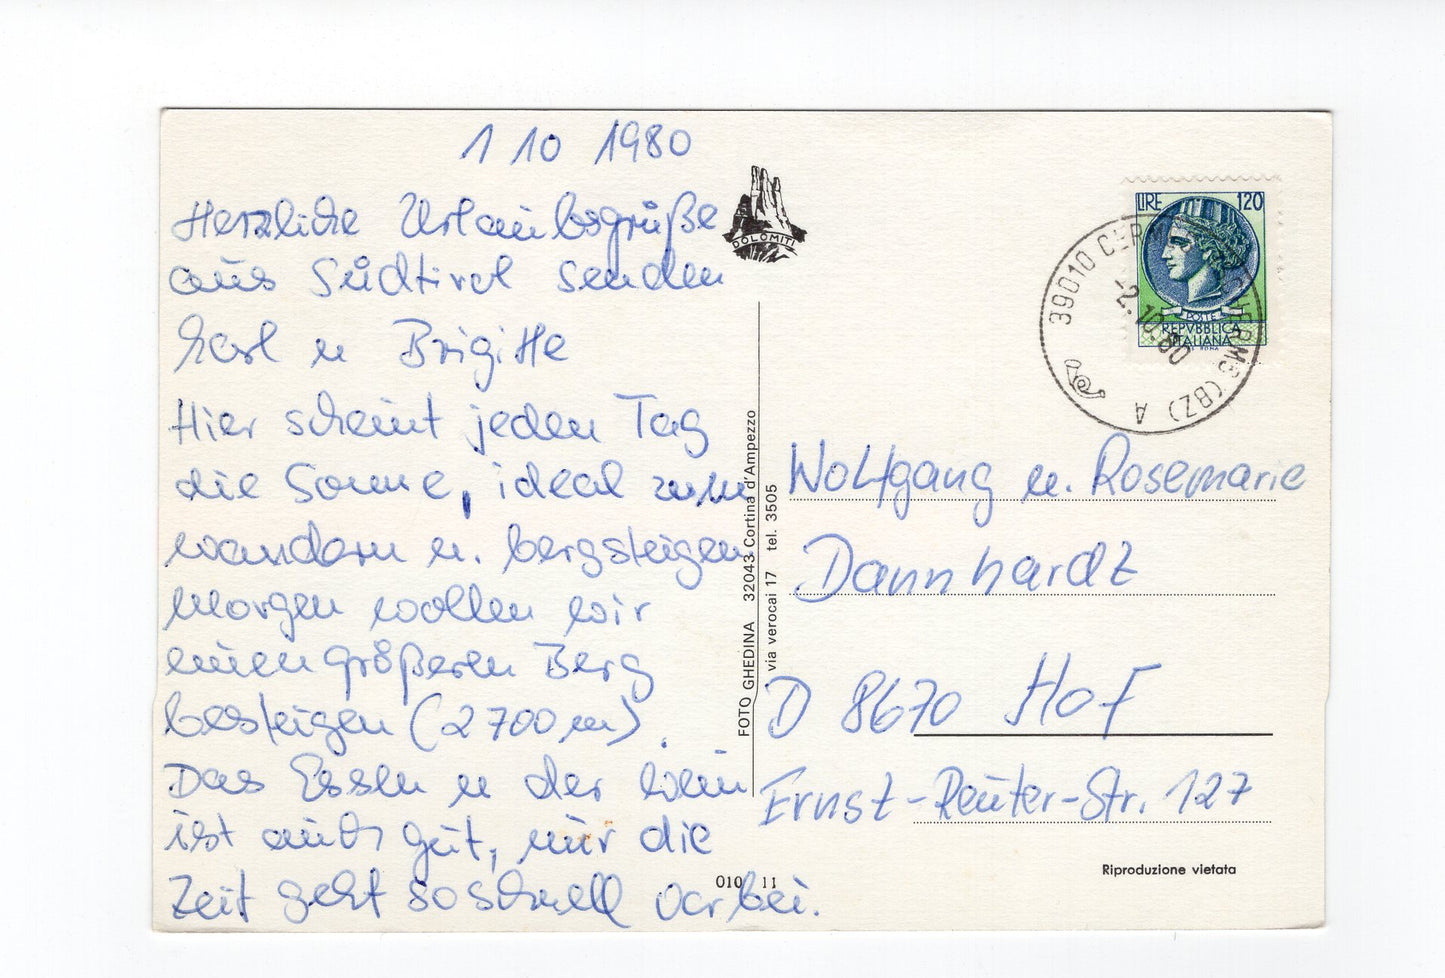 1 10 1980
Herzliche Urlaubsgrüße
aus Südtirol senden
Karl u Brigitte
Hier scheint jeden Tag
die Sonne, ideal zum
wandern u. bergsteigen
Morgen wollen wir
einen größeren Berg
besteigen (2700 m).
Das Essen u der Wein
ist auch gut, nur die
Zeit geht so schnell vorbei.
DOLOMITI
FOTO GHEDINA 32043 Cortina d'Ampezzo
via verocai 17 tel. 3505
010 11
LIRE 120
POSTE
REPVBBLICA
ITALIANA
39010 CER
(BZ) A
-2.10.80
Wolfgang u. Rosemarie
Dannhardt
D 8670 Hof
Ernst-Reuter-Str. 127
Riproduzione vietata